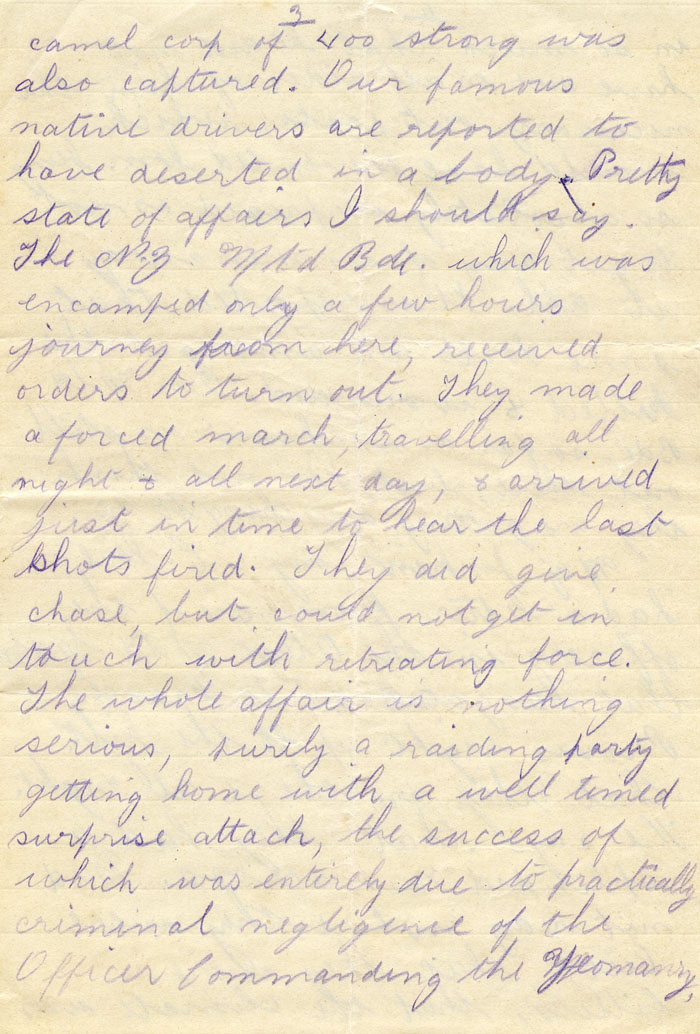 3
camel corp of 400 strong was
also captured. Our famous
native drivers are reported to
have deserted in a body. Pretty
state of affairs I should say.
The N.Z. Mtd Bde. which was
encamped only a few hours
journey from here, received
orders to turn out. They made
a forced march, travelling all
night & all next day, & arrived
just in time to hear the last
shots fired. They did give
chase, but could not get in
touch with retreating force.
The whole affair is nothing
serious, purely a raiding party
getting home with a well timed
surprise attach, the success of
which was entirely due to practically
criminal negligence of the
Officer Commanding the Yeomanry,